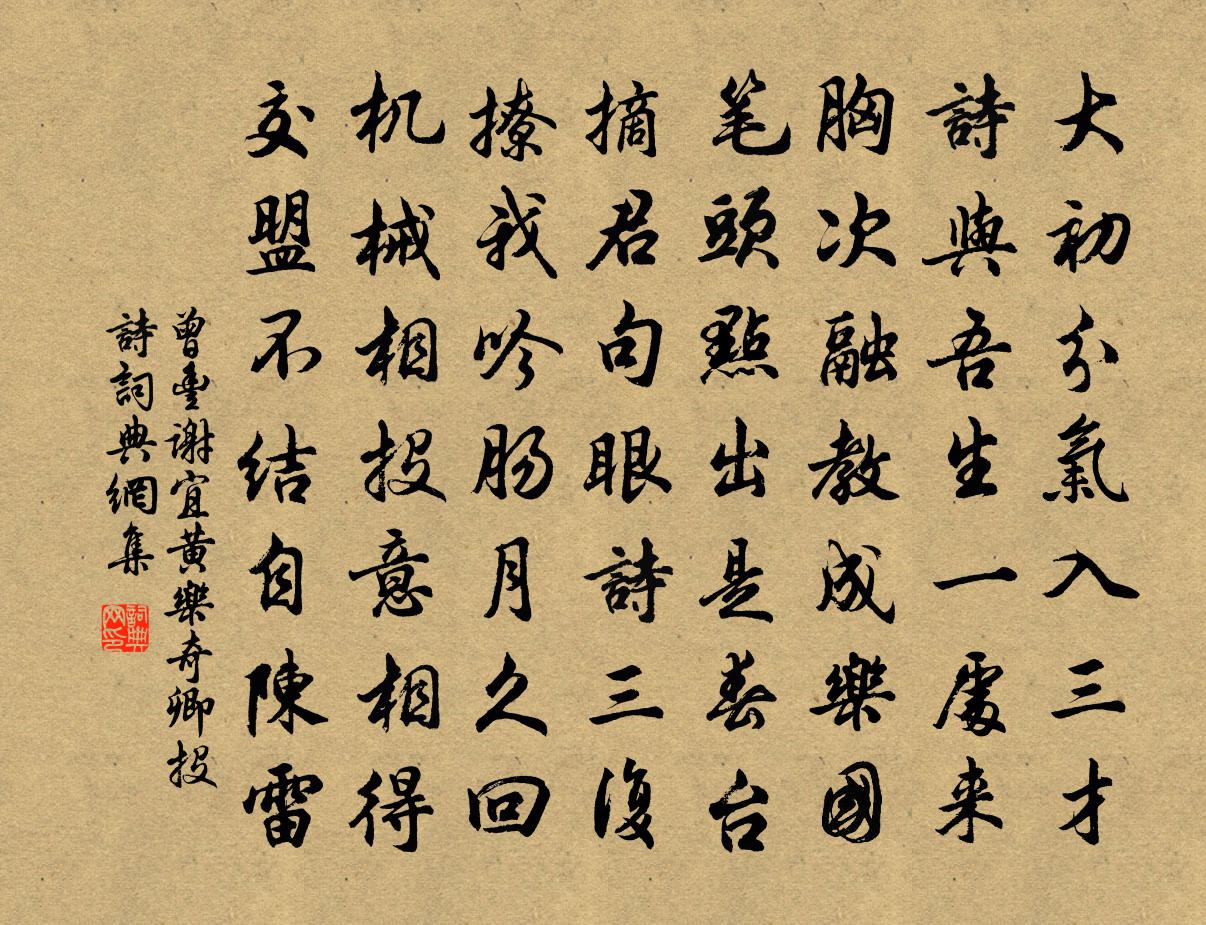 大初分氣入三才
詩與吾生一處来
胸次融教成樂國
笔頭點出是春台
摘君句眼詩三復
撩我吟肠月久回
机械相投意相得
交盟不结自陳雷
曾豊谢宜黄樂奇卿投
詩詞典網集
詞典网印